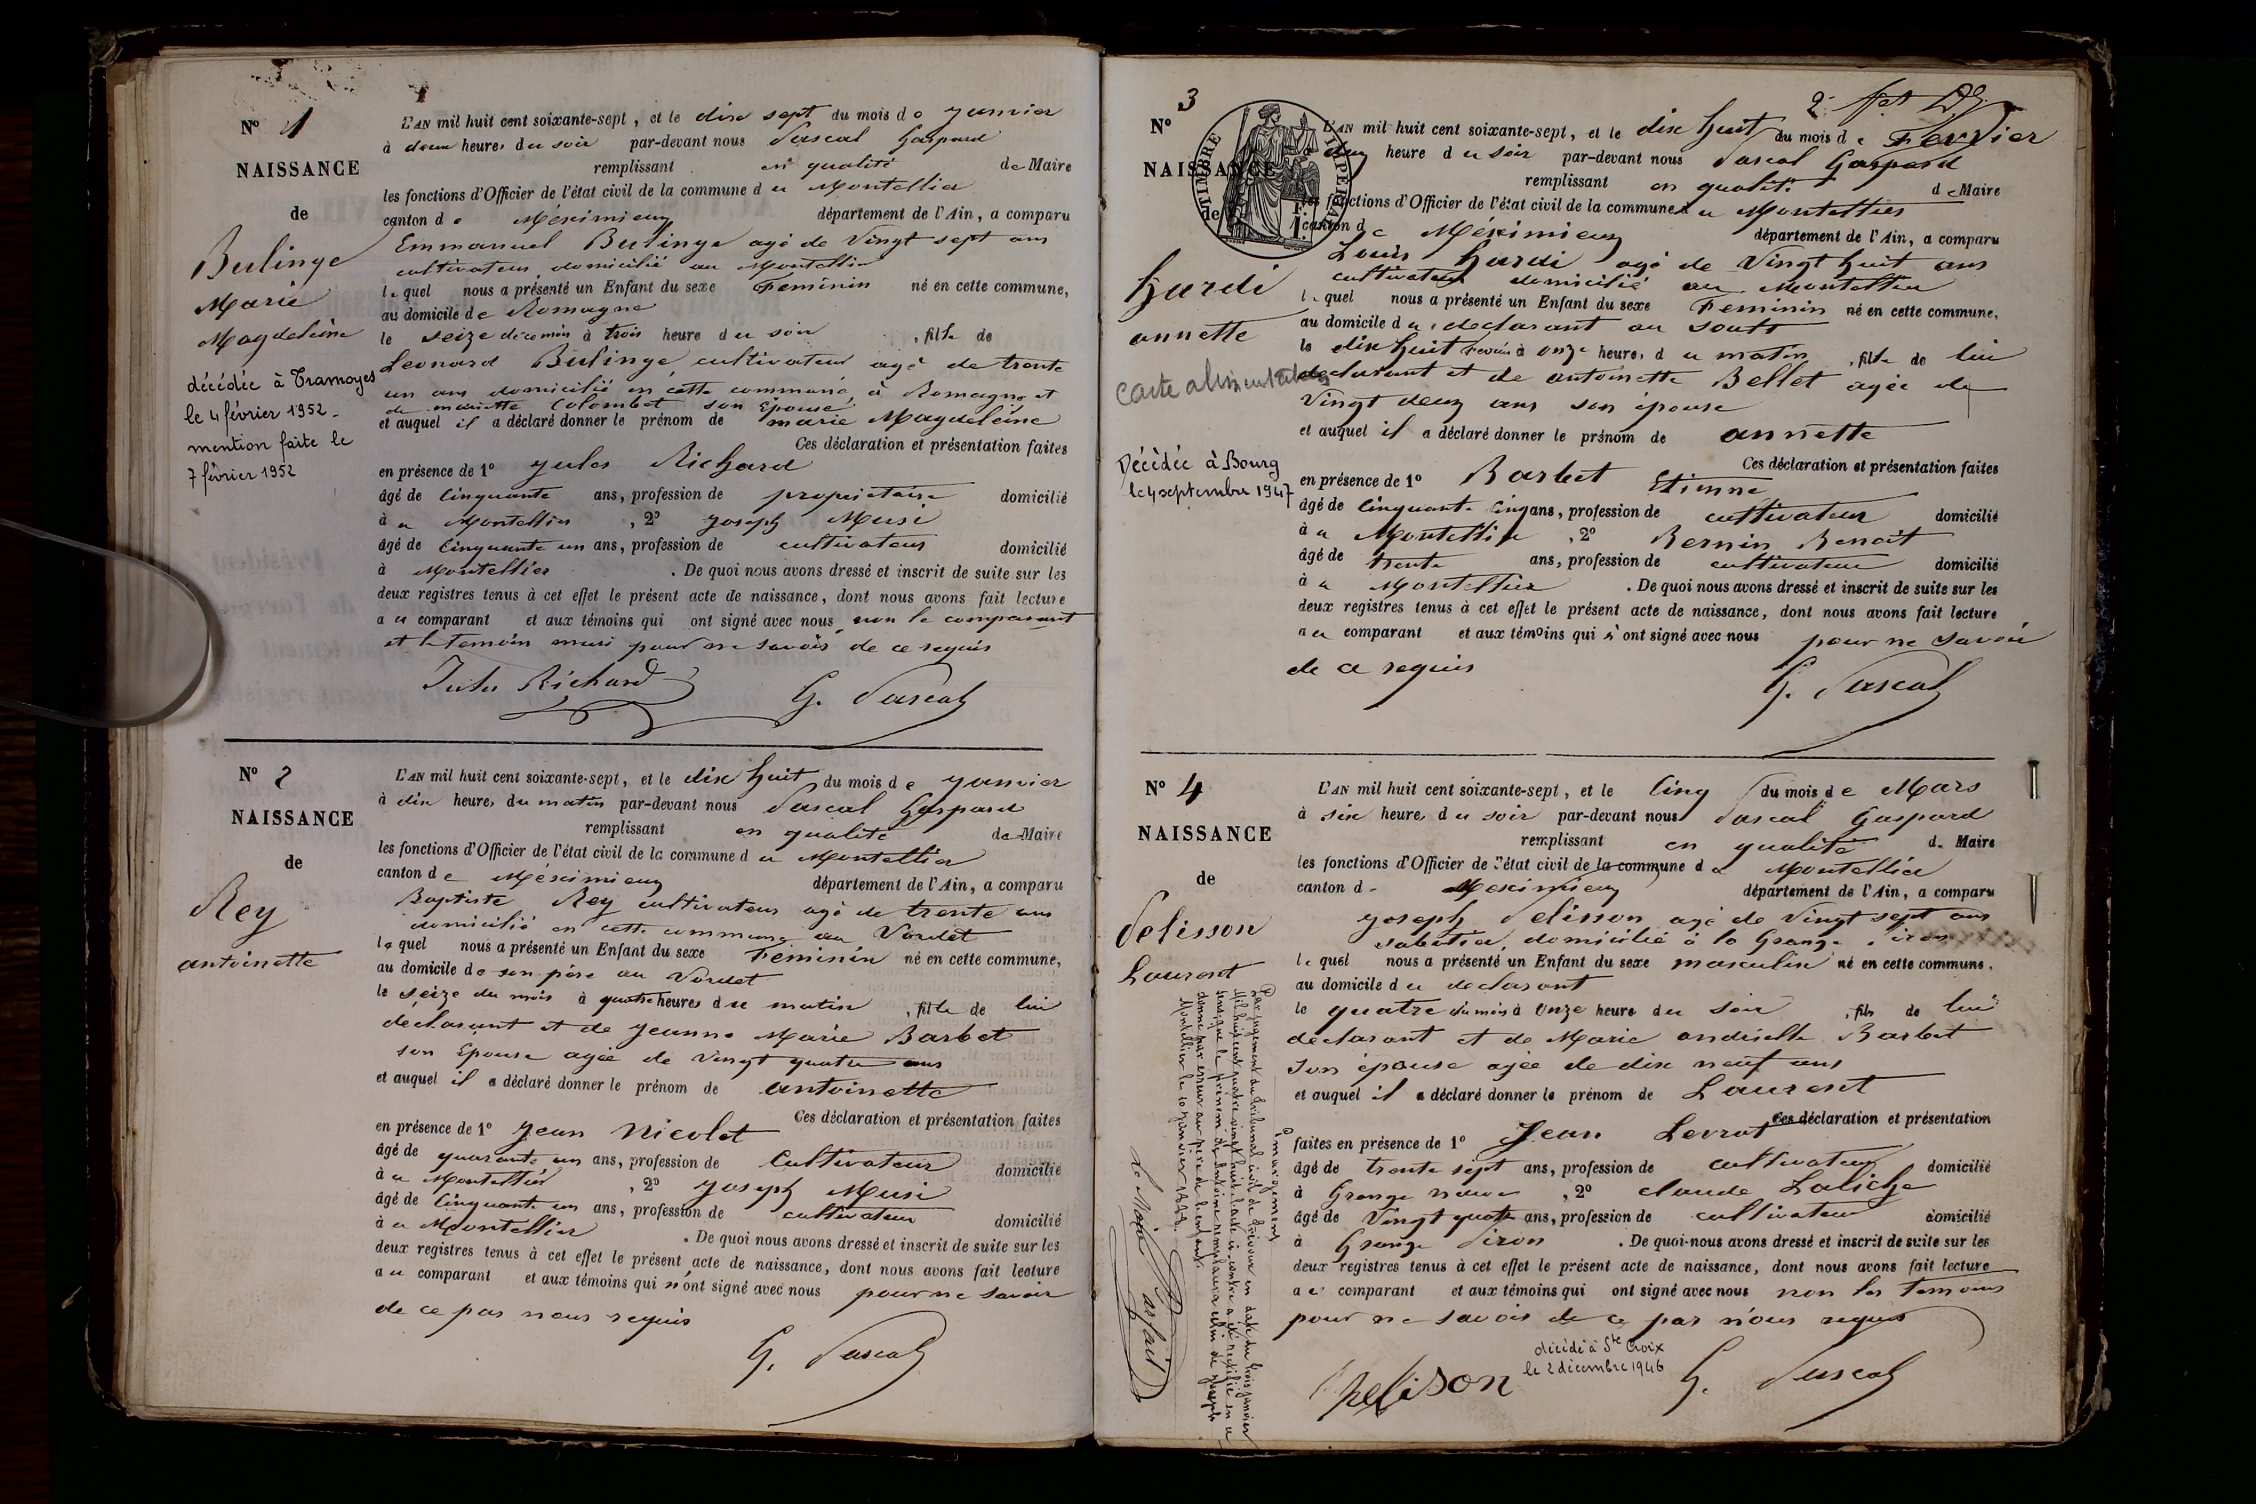 N° 1
NAISSANCE
de
Bulinge
Marie
Magdeleine
décédée à Tramoyes
le 4 février 1952 -
mention faite le
7 février 1952
L'AN mil huit cent soixante-sept, et le dix sept du mois de janvier
à deux heures du soir par-devant nous Pascal Gaspard
remplissant en qualité de Maire
les fonctions d'Officier de l'état civil de la commune du Montellier
canton de Méximieux département de l'Ain, a comparu
Emmanuel Bulinge agé de Vingt sept ans
cultivateur domicilié au Montellier
lequel nous a présenté un Enfant du sexe Feminin né en cette commune,
au domicile de Romagne
le seize de ce mois à trois heure du soir, fille de
Leonard Bulinge cultivateur agé de trente
un ans domicilié en cette commune, à Romagne et
de mariette Colombet son Epouse
et auquel il a déclaré donner le prénom de marie Magdeleine
Ces déclaration et présentation faites
en présence de 1° Jules Richard
âgé de Cinquante ans, profession de propriétaire domicilié
à u Montellier, 2° Joseph Musi
âgé de Cinquante un ans, profession de cultivateur domicilié
à Montellier. De quoi nous avons dressé et inscrit de suite sur les
deux registres tenus à cet effet le présent acte de naissance, dont nous avons fait lecture
au comparant et aux témoins qui ont signé avec nous non le comparant
et le temoin musi pour ne savoir de ce requis
Jules Richard G. Pascal
N° 2
NAISSANCE
de
Rey
antoinette
L'AN mil huit cent soixante-sept, et le dix huit du mois de janvier
à dix heures du matin par-devant nous Pascal Gaspard
remplissant en qualité de Maire
les fonctions d'Officier de l'état civil de la commune du Montellier
canton de Méximieux département de l'Ain, a comparu
Baptiste Rey cultivateur agé de trente ans
domicilié en cette commune au Verdet
lequel nous a présenté un Enfant du sexe Feminin né en cette commune,
au domicile de son père au Verdet
le seize du mois à quatre heures du matin, fille de lui
déclarant et de Jeanne Marie Barbet
son Epouse agée de vingt quatre ans
et auquel il a déclaré donner le prénom de antoinette
Ces déclaration et présentation faites
en présence de 1° Jean Nicolet
âgé de quarante un ans, profession de Cultivateur domicilié
à u Montellier, 2° Joseph Musi
âgé de Cinquante un ans, profession de cultivateur domicilié
à u Montellier. De quoi nous avons dressé et inscrit de suite sur les
deux registres tenus à cet effet le présent acte de naissance, dont nous avons fait lecture
au comparant et aux témoins qui n'ont signé avec nous pour ne savoir
de ce par nous requis
G. Pascal
N° 3
NAISSANCE
de
hardi
annette
Carte alimentation
Décédée à Bourg
le 4 septembre 1947
TIMBRE IMPÉRIAL
1 F.
2e
L'AN mil huit cent soixante-sept, et le dix huit du mois de Fevrier
heure du soir par-devant nous Pascal Gaspard
remplissant en qualité de Maire
les fonctions d'Officier de l'état civil de la commune du Montellier
canton de Méximieux département de l'Ain, a comparu
Louis hardi agé de Vingt huit ans
cultivateur domicilié au Montellier
lequel nous a présenté un Enfant du sexe Feminin né en cette commune,
au domicile du declarant au
le dix huit Fevrier à onze heures du matin, fille de lui
declarant et de antoinette Bellet agée de
Vingt deux ans son épouse
et auquel il a déclaré donner le prénom de annette
Ces déclaration et présentation faites
en présence de 1° Barbet Etienne
âgé de Cinquante Cinq ans, profession de cultivateur domicilié
à u Montellier, 2° Bernin Benoit
âgé de trente ans, profession de cultivateur domicilié
à u Montellier. De quoi nous avons dressé et inscrit de suite sur les
deux registres tenus à cet effet le présent acte de naissance, dont nous avons fait lecture
au comparant et aux témoins qui n'ont signé avec nous pour ne savoir
de ce requis
G. Pascal
N° 4
NAISSANCE
de
Pelisson
Laurent
L'AN mil huit cent soixante-sept, et le Cinq du mois de Mars
à six heures du soir par-devant nous Pascal Gaspard
remplissant en qualité de Maire
les fonctions d'Officier de l'état civil de la commune du Montellier
canton de Meximieux département de l'Ain, a comparu
Joseph Pelisson agé de Vingt sept ans
sabotier, domicilié à la Grange Piron
lequel nous a présenté un Enfant du sexe masculin né en cette commune,
au domicile du declarant
le quatre du mois à onze heure du soir, fils de lui
declarant et de Marie Barbet
son épouse agée de dix neuf ans
et auquel il a déclaré donner le prénom de Laurent
Ces déclaration et présentation
faites en présence de 1° Jean Levrat
âgé de trente sept ans, profession de cultivateur domicilié
à Grange neuve, 2° claude Laliche
âgé de Vingt quatre ans, profession de cultivateur domicilié
à Grange Piron. De quoi nous avons dressé et inscrit de suite sur les
deux registres tenus à cet effet le présent acte de naissance, dont nous avons fait lecture
au comparant et aux témoins qui ont signé avec nous non les temoins
pour ne savoir de ce par nous requis
décédé à Ste Croix
le 2 décembre 1946
Pelisson G. Pascal
Emargement
Par jugement du Tribunal civil de Trévoux en date du trois janvier
Mil huit cent quatre vingt huit l'acte ci-contre a été rectifié en ce
sens que le prénom de Antoine remplacera celui de Joseph
donné par erreur au père de l'enfant.
Montellier le 10 Janvier 1888.
Le Maire
Parfait